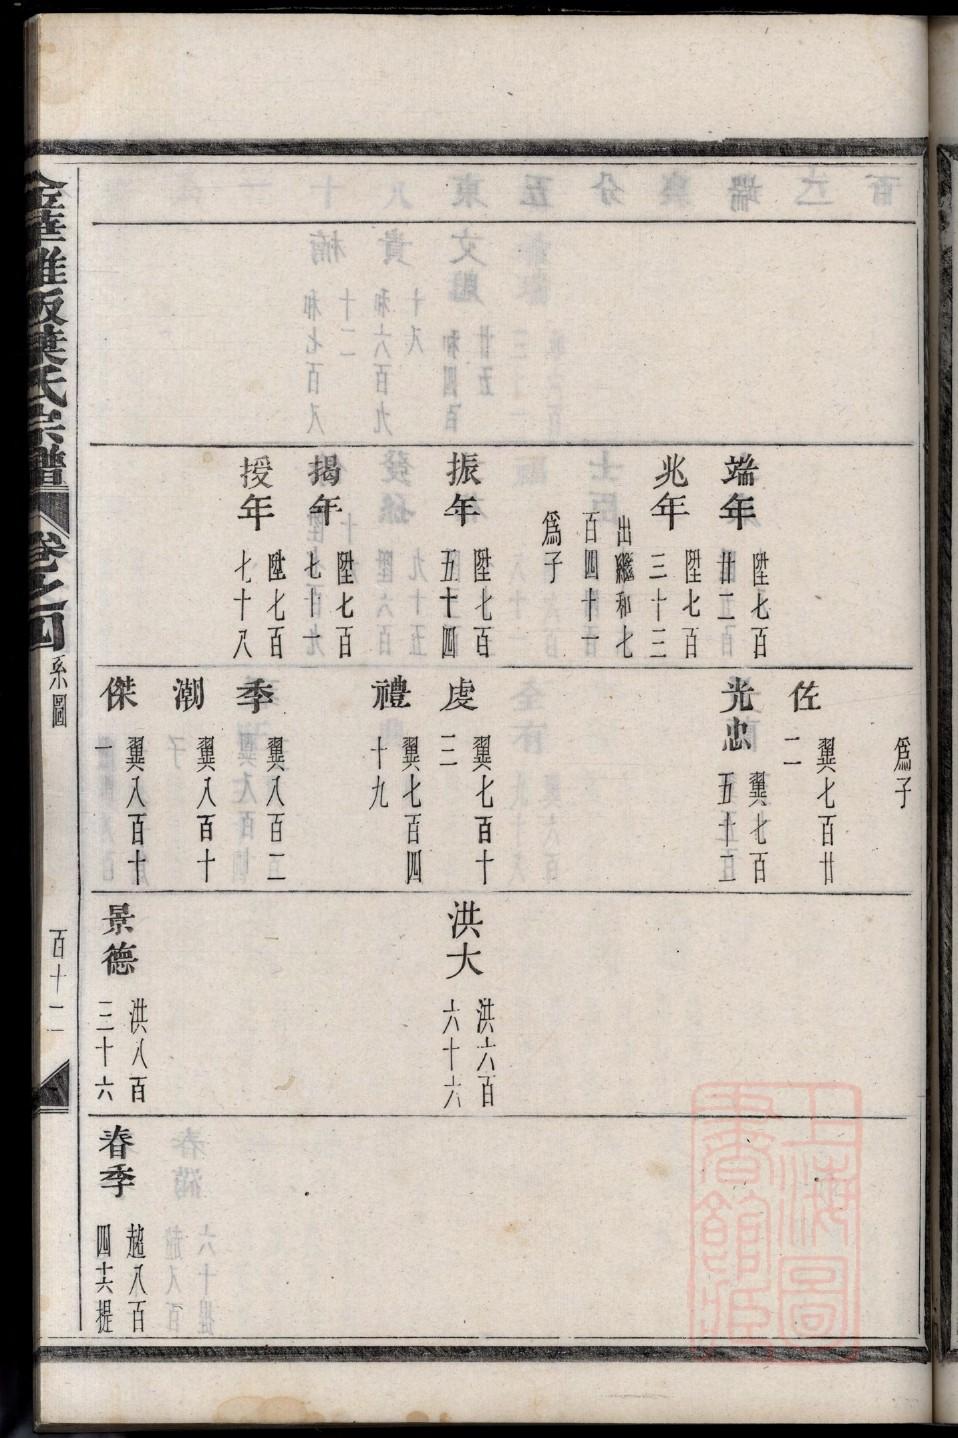 端年 陞七百廿二
兆年 陞七百三十三
出繼和七百四十一
爲子
振年 陞七百五十四
揭年 陞七百七十一
授年 陞七百七十八
爲子
佐 翼七百廿二
光忠 翼七百五十二
虔 翼七百十三
禮 翼七百四十九
季 翼八百二
潮 翼八百十
傑 翼八百十一
洪大 洪六百六十六
景德 洪八百三十六
春季 趨八百四十六提
葉氏宗譜 卷之四 系圖 百十二
上海圖書館藏